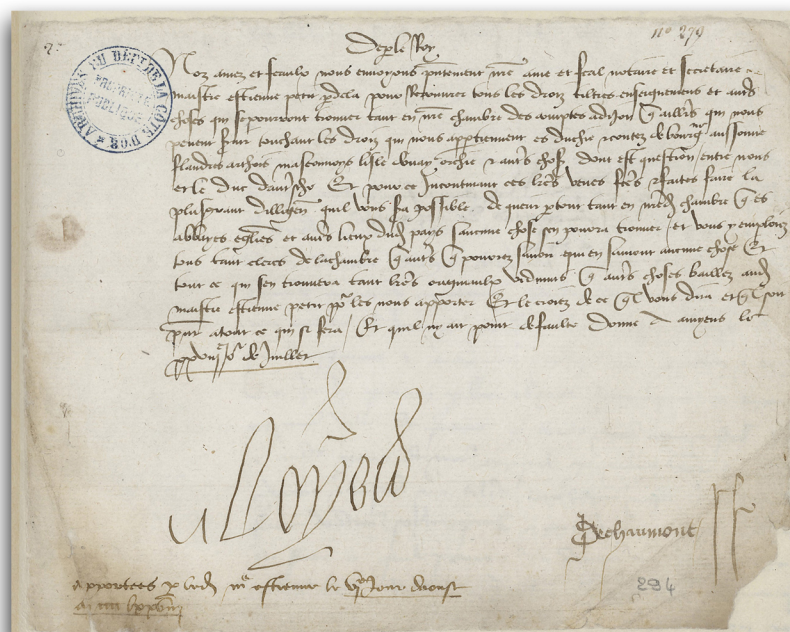 De par le Roy
nº 279
ARCHIVES DU DEPT DE LA COTE D'OR
PROPRIETE PUBLIQUE
Noz amez et feaulx nous envoyons presentement nre ame et feal notaire et secretaire
maistre estienne petit pardela pour Recouvrer tous les droiz tiltres enseignemens et autrs
choses qui se pourront trouver tant en nre chambre des comptes adijon que ailleurs qui nous
peuent servir touchant les droiz qui nous appartiennent es duchie et contez de bourgne aussonne
flandres arthois masconnoys lisle douay orchie et autrs choses dont est question entre nous
et le duc dautriche Et pour ce Incontinant ces lres veues fetes et faites faire la
plus grant dilligence quil vous sera possible de querir partout tant en nredicte chambre que es
abbayes eglises et autrs lieux dudit pays saucune chose sen pourra trouver et vous y emploiez
tous tant clercs de lachambre que autrs que pourrez savoir qui en sauront aucune chose Et
tout ce qui sen trouvera tant lres originaulx vidimus que autrs choses baillez audit
maistre estienne petit pour les nous apporter Et le croiez de ce quil vous dira et quil soit
par atout ce qui se fera Et quil ny ait point de faulte donne a amyens le
jour de Juillet
Loys
De chaumont
294
apportees par ledit me estienne le jour daoust